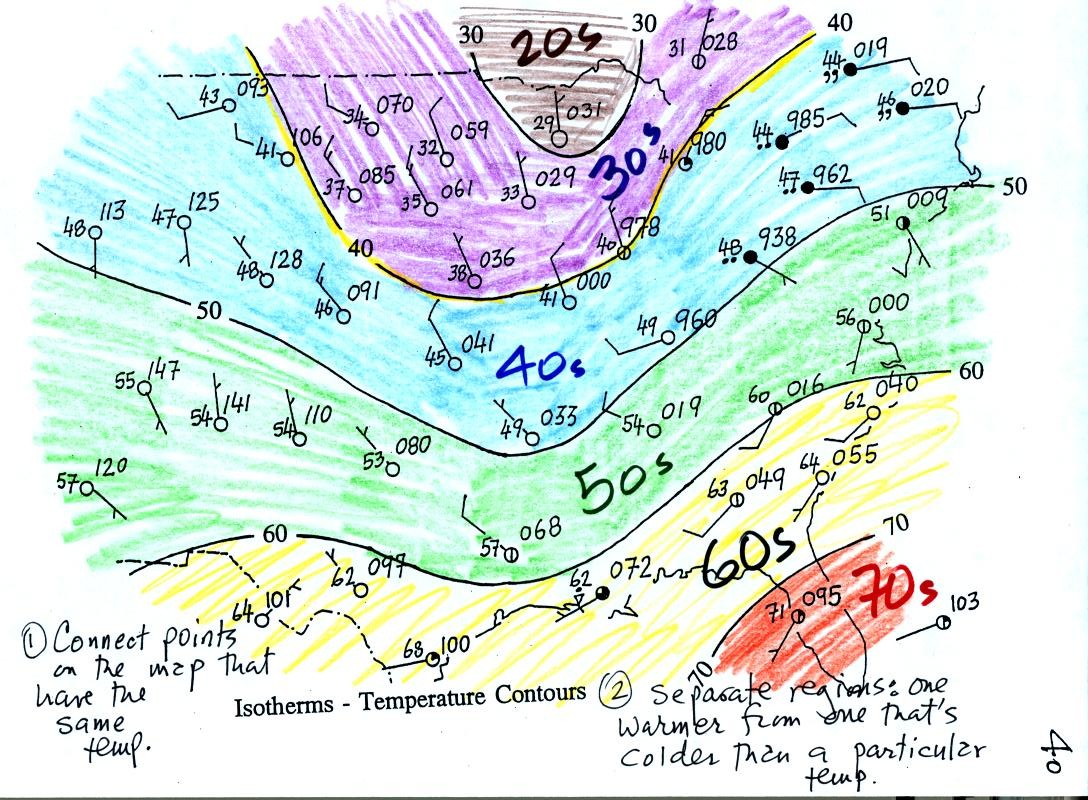 30
20s
30
40
31 028
44 019
,,
43 093
34 070
29 031
46 020
,,
32 059
44 985
41 106
41 980
30s
37 085
35 061
33 029
47 962
50
48 113
47 125
51 009
40 978
40
48 128
38 036
48 938
46 091
41 000
50
56 000
49 960
45 041
40s
60
55 147
60 016
62 040
54 141
54 110
49 033
54 019
53 080
64 055
57 120
50s
63 049
57 068
70
60
60s
62 097
62 072
70s
64 101
71 095
103
68 100
70
① Connect points
on the map that
have the
same
temp.
Isotherms - Temperature Contours
② Separate regions: one
warmer from one that's
colder than a particular
temp.
40